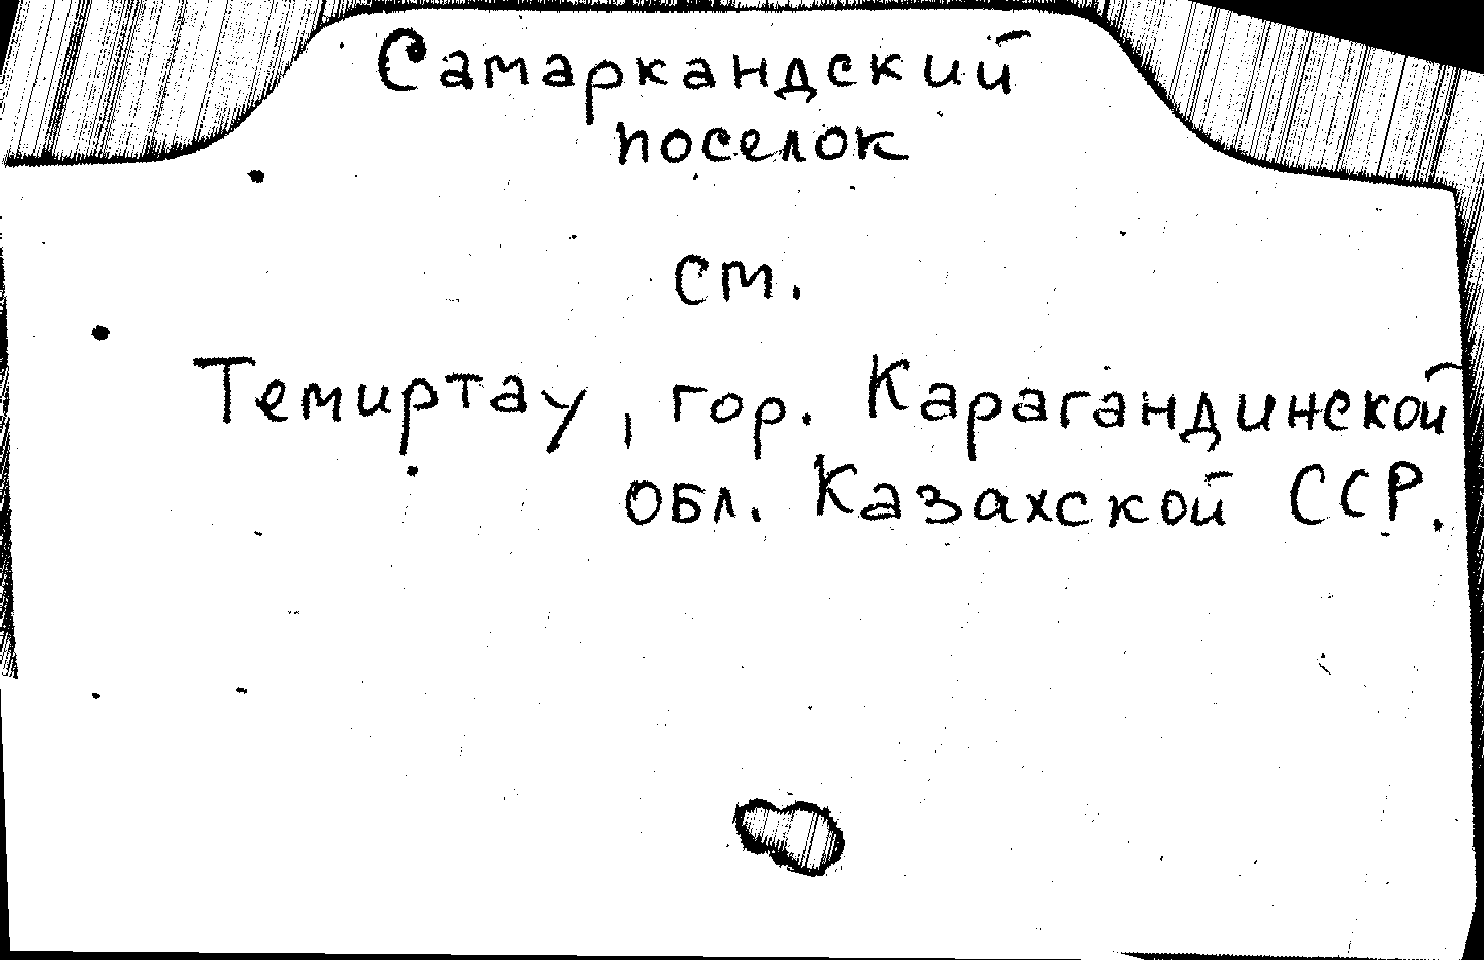 Самаркандский
поселок
см.
Темиртау, гор. Карагандинской
обл. Казахской ССР.